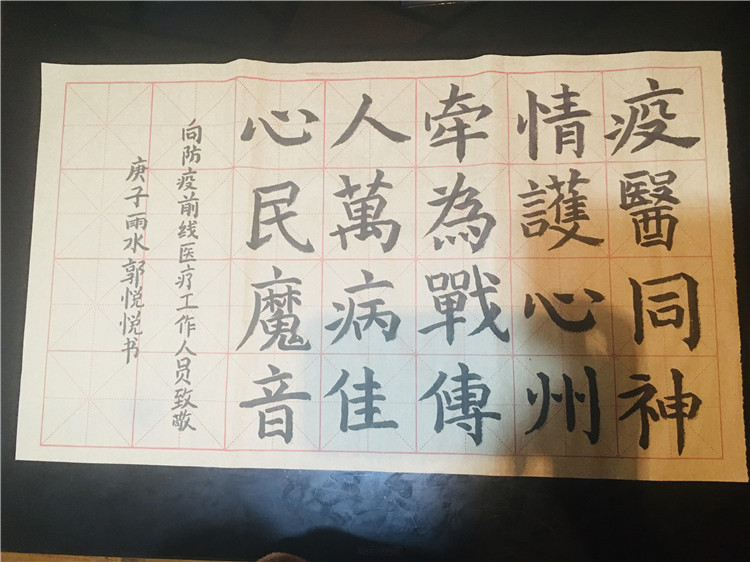 疫情牽人心
醫護為萬民
同心戰病魔
神州傳佳音
向防疫前线医疗工作人员致敬
庚子雨水郭悦悦书